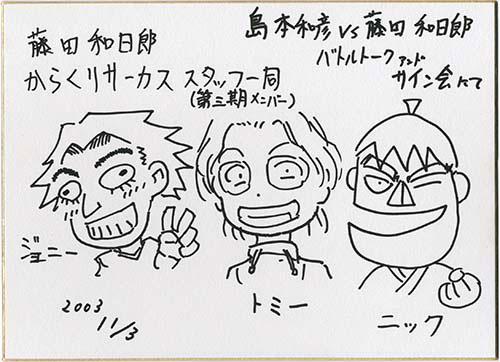 藤田和日郎
からくりサーカス スタッフ一同
(第三期メンバー)
島本和彦 VS 藤田和日郎
バトルトーク アンド
サイン会にて
ジョニー
トミー
ニック
2003
11/3